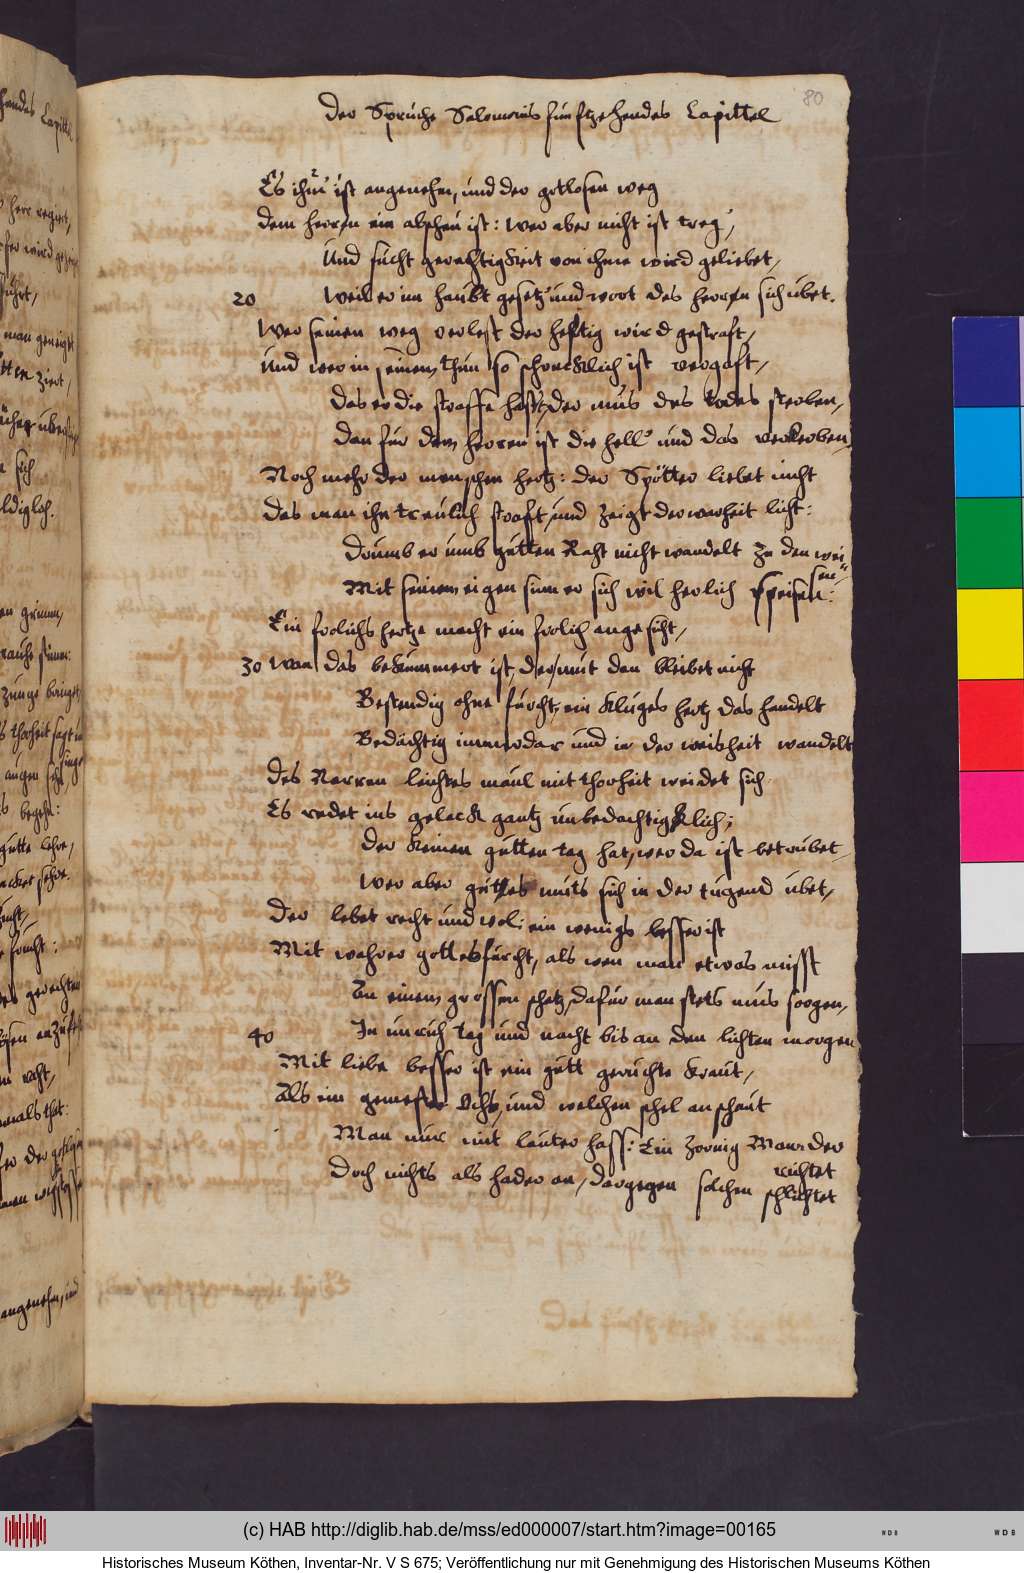 80
Der Sprüche Salomonis funftzehendes Capittel
Es ihm ist angenehm, und der gotlosen weg
dem herren ein abscheu ist: wer aber nicht ist treg,
Und sucht gerechtigkeit von ihme wird geliebet,
20 Weil er im haubt gesetz und wort des herren sich übet.
Wer seinen weg verlest der heftig wird gestraft,
Und wer in seinem thun so schrecklich ist vergaft,
Das er die straffe hast, der mus des todes sterben,
Dan für dem herren ist die hell und das verderben,
Noch mehr der menschen hertz: der Spötter liebet nicht
das man ihn treulich straft, und zeigt der warheit licht:
Drumb er umb gutten Raht nicht wandelt zu den wei
sen,
Mit seinem eigen sinn er sich wil herlich speisen:
Ein frölichs hertze macht ein frölich angesicht,
30 Wan das bekümmert ist, der mut dan bleibet nicht
Bestendig ohne furcht, ein kluges hertz das handelt
Bedächtig immerdar und in der weisheit wandelt
des Narren leichtes maul mit thorheit weidet sich
Es redet ins gelack gantz unbedachtigklich;
Der keinen gutten tag hat, wer da ist betrubet,
Wer aber guttes muts sich in der tugend übet,
Der lebet recht und wol: ein wenigs besser ist
Mit wahrer gottesfurcht, als wen man etwas misst
Zu einem grossen schatz, dafür man stets mus sorgen,
40 In unruh tag und nacht bis an den lichten morgen
Mit liebe besser ist ein gutt geruchte kraut,
Als ein gemester Ochs, und welchen schel anschaut
Man nur mit lauter hass: Ein zornig Man der
richtet
Doch nichts als hader an, dargegen solchen schlichtet
(c) HAB http://diglib.hab.de/mss/ed000007/start.htm?image=00165
WDB
WDB
Historisches Museum Köthen, Inventar-Nr. V S 675; Veröffentlichung nur mit Genehmigung des Historischen Museums Köthen